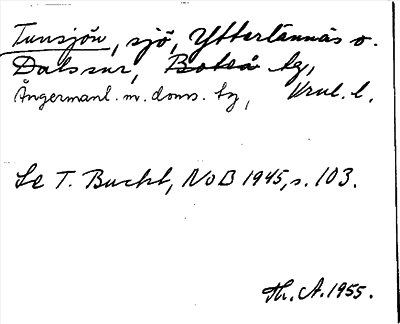 Tunsjön, sjö, Ytterlännäs o.
Dals snr, Boteå tg,
Ångermanl. m. doms. tg, Vnul. l.
Se T. Bucht, NoB 1945, s. 103.
Th. A. 1955.